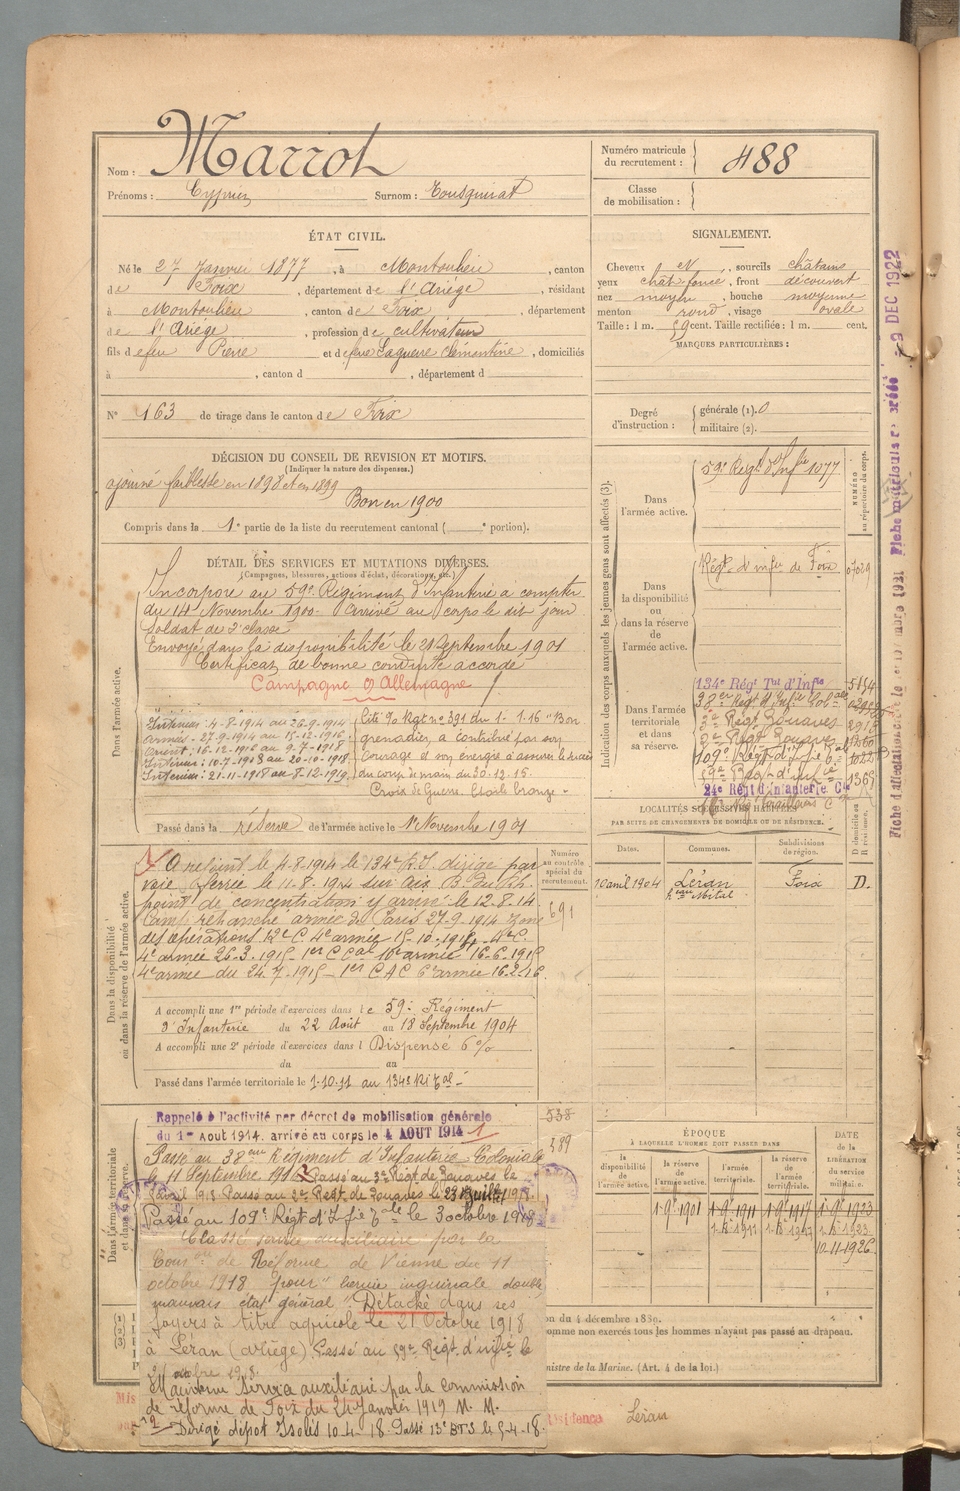 Nom : Marrot
Prénoms : Cyprien Surnom : Tousquirat
Numéro matricule du recrutement : 488
Classe de mobilisation :
ÉTAT CIVIL.
Né le 27 Janvier 1877, à Montoulieu, canton
de Foix, département de l'Ariège, résidant
à Montoulieu, canton de Foix, département
de l'Ariège, profession de cultivateur
fils de feu Pierre et de feue Laguerre Clémentine, domiciliés
à , canton d , département d
N° 163 de tirage dans le canton de Foix
SIGNALEMENT.
Cheveux N, sourcils châtains
yeux chât foncé, front découvert
nez moyen, bouche moyenne
menton rond, visage ovale
Taille : 1 m. 59 cent. Taille rectifiée : 1 m. cent.
MARQUES PARTICULIÈRES :
Degré d'instruction : générale (1). 0
militaire (2).
DÉCISION DU CONSEIL DE REVISION ET MOTIFS.
(Indiquer la nature des dispenses.)
ajourné faiblesse en 1898 et en 1899
Bon en 1900
Compris dans la 1e partie de la liste du recrutement cantonal ( e portion).
DÉTAIL DES SERVICES ET MUTATIONS DIVERSES.
(Campagnes, blessures, actions d'éclat, décorations, etc.)
Dans l'armée active.
Incorporé au 59e Régiment d'Infanterie à compter
du 14 Novembre 1900. Arrivé au corps le dit jour
Soldat de 2e classe
Envoyé dans la disponibilité le 21 Septembre 1901
Certificat de bonne conduite accordé
Campagne c/ Allemagne
Intérieur : 4-8-1914 au 26-9-1914
Armées - 27-9-1914 au 15-12-1916
Orient : 16-12-1916 au 9-7-1918
Intérieur : 10-7-1918 au 20-10-1918
Intérieur : 21-11-1918 au 8-12-1919
Cité o/ Rgt n° 391 du 1-1-16 "Bon
grenadier, a contribué par son
courage et son énergie à assurer le succès
au coup de main du 30.12.15.
Croix de Guerre. Etoile bronze -
Passé dans la réserve de l'armée active le 1er Novembre 1901
Dans la disponibilité ou dans la réserve de l'armée active.
A rejoint le 4.8.1914 le 134e R.I. dirigé par
voie ferrée le 11.8.1914 sur Aix B. du Rh.
point de concentration y arrivé le 12.8.14
Camp retranché armée de Paris 27-9-1914 Zone
des opérations 12e C. 4e armée 15-10-1914 - 4e C.
4e armée 26-3-1915 - 1er C Cal 10e armée 16-6-1915
4e armée du 24.7.1915 - 1er C A C 6e armée 16.2.16
Numéro au contrôle spécial du recrutement.
691
A accompli une 1re période d'exercices dans le 59e Régiment
d'Infanterie du 22 Août au 18 Septembre 1904
A accompli une 2e période d'exercices dans l Dispensé 6%
du au
Passé dans l'armée territoriale le 1.10.11 au 134e RI Tal -
Dans l'armée territoriale et dans sa réserve
Rappelé à l'activité par décret de mobilisation générale
du 1er Août 1914. arrivé au corps le 4 AOUT 1914
538
389
Passé au 38eme Régiment d'Infanterie Coloniale
le 11 Septembre 1916 Passé au 3e Régt de Zouaves le
Avril 1918 Passé au 2e Régt de Zouaves le 23 Juillet 1918.
Passé au 109e Régt d'Infie Tale le 3 octobre 1918
Classé service auxiliaire par la
Comon de Réforme de Vienne du 11
octobre 1918 pour "hernie inguinale double
mauvais état général" Détaché dans ses
foyers à titre agricole le 21 Octobre 1918
à Léran (Ariège) Passé au 59e Régt d'infie le
21 octobre 1918.
Maintenu service auxiliaire par la commission
de réforme de Foix du 24 Janvier 1919 M. M.
Dirigé dépôt Isolés 10-4-18. Passé 13e BTS le 5-4-18.
Indication des corps auxquels les jeunes gens sont affectés (3).
NUMÉRO au répertoire du corps.
Dans l'armée active.
59e Régt d'Infie 1077
Dans la disponibilité ou dans la réserve de l'armée active.
Régt d'infie de Foix 07029
Dans l'armée territoriale et dans sa réserve.
134e Régt Tal d'Infie 5154
38e Régt d'Infie Colale
3e Régt Zouaves 2916
2e Régt Zouaves
109e Régt d'Infie Tale 1022
59e Régt d'infie 1365
24e Régt d'Infanterie Cle
LOCALITÉS SUCCESSIVES HABITÉES
PAR SUITE DE CHANGEMENTS DE DOMICILE OU DE RÉSIDENCE.
Dates. Communes. Subdivisions de région. D domicile ou R résidence.
10 avril 1904 Léran Foix D.
ham Mital
ÉPOQUE
À LAQUELLE L'HOMME DOIT PASSER DANS
DATE de la LIBÉRATION du service militaire.
la disponibilité de l'armée active. la réserve de l'armée active. l'armée territoriale. la réserve de l'armée territoriale.
1-9-1901 1-9-1911 1-9-1917 1-9-1923
10-11-1926
on du 4 décembre 1889.
omme non exercés tous les hommes n'ayant pas passé au drapeau.
inistre de la Marine. (Art. 4 de la loi.)
Mis
résidence Léran
9 DEC 1922